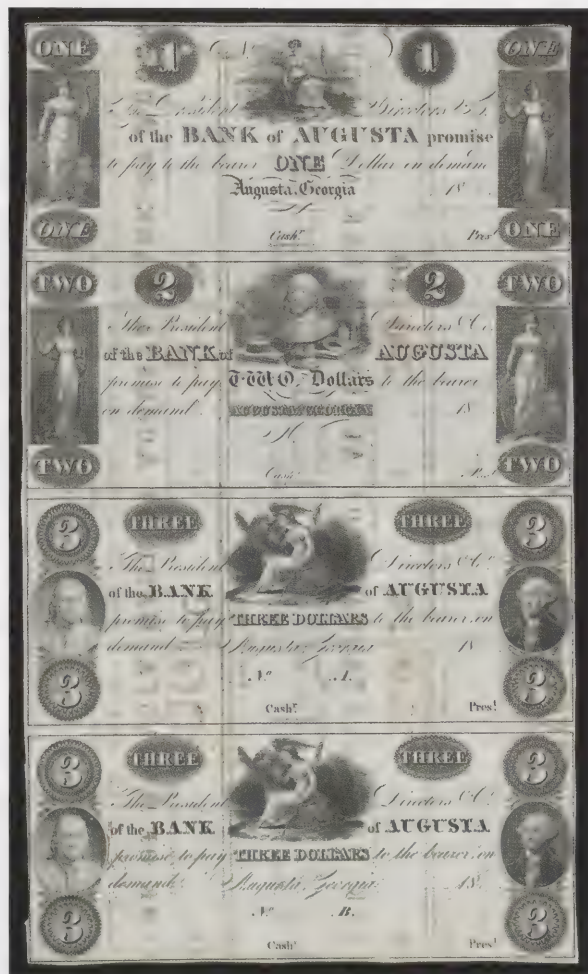 ONE 1 1 ONE
The President Directors & Co.
of the BANK of AUGUSTA promise
to pay to the bearer ONE Dollar on demand
Augusta, Georgia 18
Cashr. Prest.
ONE ONE
TWO 2 2 TWO
The President Directors & Co.
of the BANK of AUGUSTA
promise to pay TWO Dollars to the bearer
on demand AUGUSTA, GEORGIA 18
Cashr. Prest.
TWO TWO
3 THREE THREE 3
The President Directors & Co.
of the BANK of AUGUSTA
promise to pay THREE DOLLARS to the bearer on
demand Augusta, Georgia 18
No. A.
Cashr. Prest.
3 3
3 THREE THREE 3
The President Directors & Co.
of the BANK of AUGUSTA
promise to pay THREE DOLLARS to the bearer on
demand Augusta, Georgia 18
No. B.
Cashr. Prest.
3 3